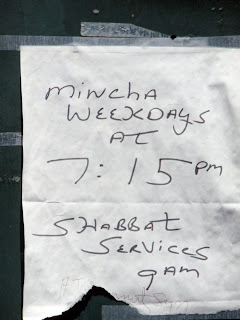 Mincha
WEEKDAYS
AT
7:15 PM
SHABBAT
SERVICES
9AM
AT